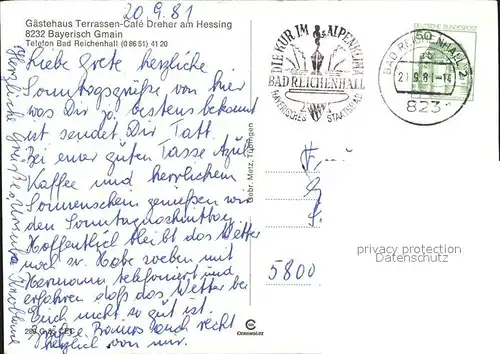 20.9.81
Gästehaus Terrassen-Café Dreher am Hessing
8232 Bayerisch Gmain
Telefon Bad Reichenhall (08651) 41 20
Liebe Grete herzliche
Sonntagsgrüße von hier
was Dir ja bestens bekannt
ist sendet Dir Tatt.
Bei einer guten Tasse
Kaffee und herrlichem
Sonnenschein genießen wir
den Sonntagnachmittag.
Hoffentlich bleibt das Wetter
noch so. Habe soeben mit
Hermann telefoniert und
erfahren daß das Wetter bei
Euch nicht so gut ist.
Grüße auch recht
herzlich von mir.
Herzliche Grüße
Gebr. Metz, Tübingen
DIE KUR IM ALPENKLIMA
BAD REICHENHALL
BAYERISCHES STAATSBAD
DEUTSCHE BUNDESPOST
50
BAD REICHENHALL 2
21.9.81-14
8231
5800
privacy protection
Datenschutz